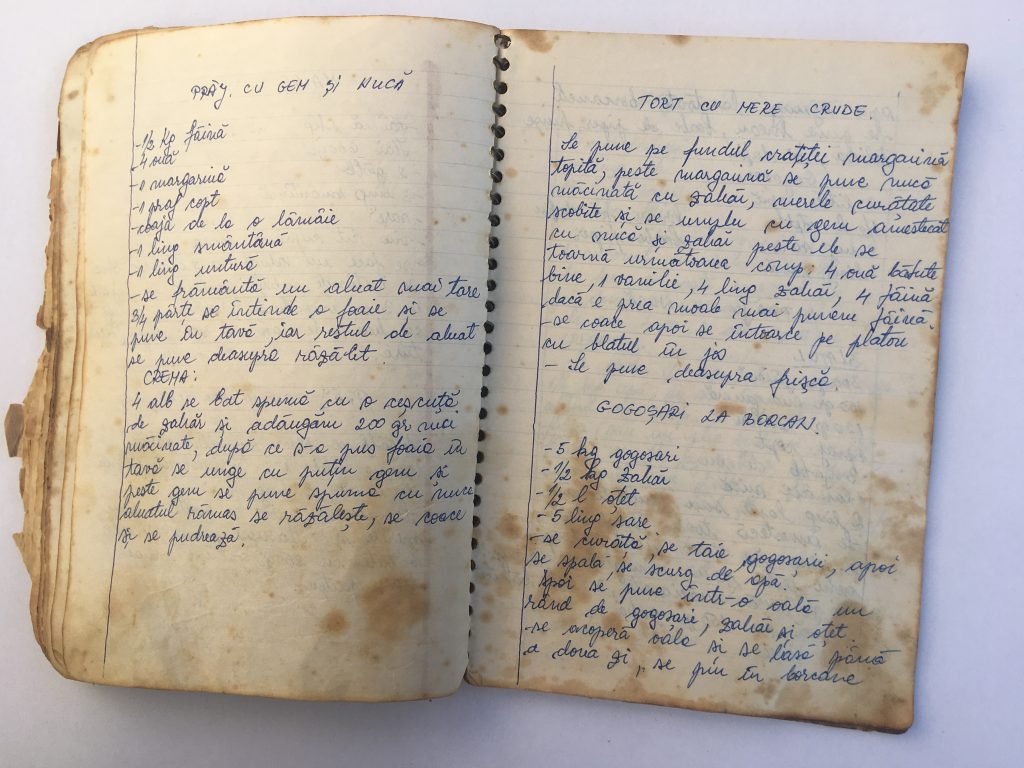 PRĂJ. CU GEM ȘI NUCĂ
-1/2 kg făină
-4 ouă
-1 margarină
-1 praf copt
-coajă de la o lămâie
-1 ling smântână
-1 ling untură
-se frământă un aluat mai tare
3/4 părți se întinde o foaie și se
pune în tavă, iar restul de aluat
se pune deasupra răzălit.
CREMA:
4 alb se bat spumă cu o cescuță
de zahăr și adăugăm 200 gr nuci
măcinate, după ce s-a pus foaia în
tavă se unge cu puțin gem și
peste gem se pune spuma cu nuca
aluatul rămas se răzălește, se coace
și se pudrează.
TORT CU MERE CRUDE.
Se pune pe fundul cratiții margarină
topită, peste margarină se pune nucă
măcinată cu zahăr, merele curățate
scobite și se umplu cu gem amestecat
cu nucă și zahăr peste ele se
toarnă următoarea comp. 4 ouă bătute
bine, 1 vanilie, 4 ling zahăr, 4 făină
dacă e prea moale mai punem făină.
-se coace apoi se întoarce pe platou
cu blatul în jos
- Se pune deasupra frișcă.
GOGOȘARI LA BORCAN.
-5 kg gogosari
-1/2 kg zahăr
-1/2 l oțet
-5 ling sare
-se curăță, se taie gogosarii, apoi
se spală, se scurg de apă
apoi se pune într-o oală un
rând de gogosari, zahăr și oțet
-se acoperă oala și se lasă până
a doua zi, se pun în borcane